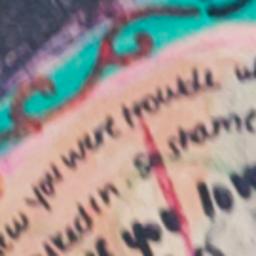 ew you were trouble w
ked in. So shame
you